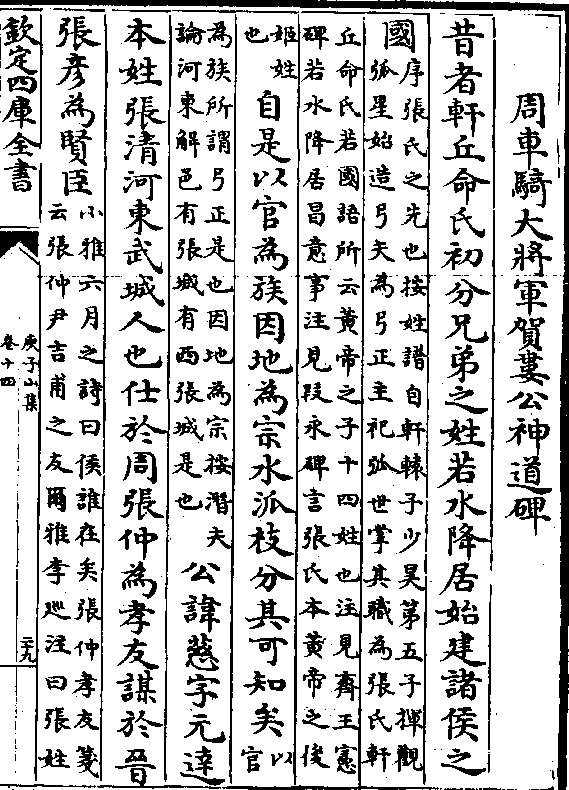 周車騎大將軍賀婁公神道碑
昔者軒丘命氏初分兄弟之姓若水降居始建諸侯之
國
序張氏之先也按姓譜自軒轅子少昊第五子揮觀
弧星始造弓矢為弓正主祀弧世掌其職為張氏軒
丘命氏若國語所云黃帝之子十四姓也注見齊王憲
碑若水降居昌意事注見段永碑言張氏本黃帝之後
姬姓
也
自是以官為族因地為宗水派枝分其可知矣
以
官
為族所謂弓正是也因地為宗按潛夫
論河東解邑有張城有西張城是也
公諱慈字元達
本姓張清河東武城人也仕於周張仲為孝友謀於晉
張彥為賢臣
小雅六月之詩曰侯誰在矣張仲孝友箋
云張仲尹吉甫之友爾雅李巡注曰張姓
欽定四庫全書
庾子山集
卷十四
二十九